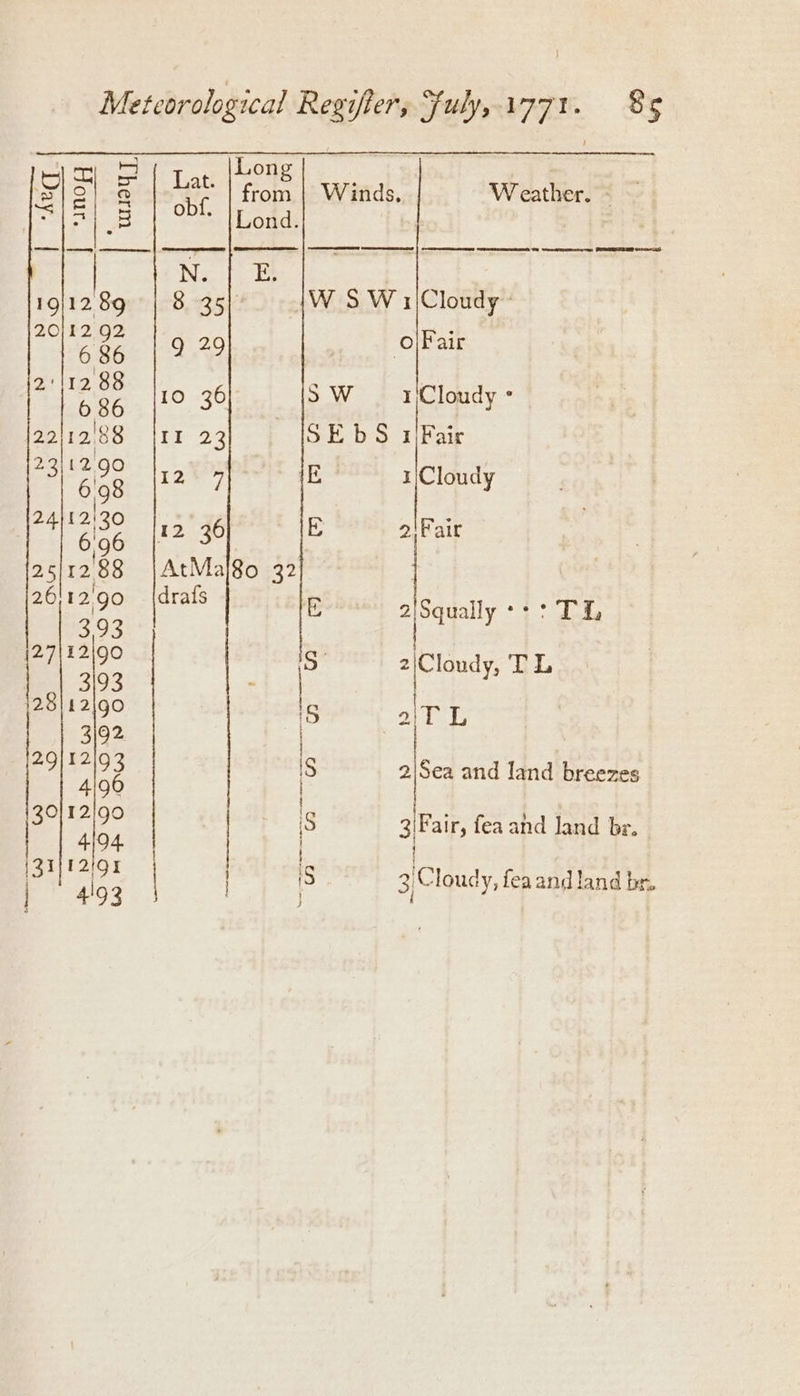 Meteorological Regiſter, July, 1771. 85
Day. | Hour. | Therm. | Lat. obſ. | Long from Lond. | Winds. | Weather.
N. | E.
19 | 12 | 89 | 8 35 | W S W 1 | Cloudy
20 | 12 | 92
6 | 86 | 9 29 | 0 | Fair
21 | 12 | 88
6 | 86 | 10 36 | S W 1 | Cloudy •
22 | 12 | 88 | 11 23 | S E b S 1 | Fair
23 | 12 | 90
6 | 98 | 12 7 | E 1 | Cloudy
24 | 12 | 30
6 | 96 | 12 36 | E 2 | Fair
25 | 12 | 88 | At Ma | 80 32
26 | 12 | 90 | draſs
3 | 93 | E 2 | Squally • • • T L
27 | 12 | 90
3 | 93 | S 2 | Cloudy, T L
28 | 12 | 90
3 | 92 | S 2 | T L
29 | 12 | 93
4 | 96 | S 2 | Sea and land breezes
30 | 12 | 90
4 | 94 | S 3 | Fair, ſea and land br.
31 | 12 | 91
4 | 93 | S 3 | Cloudy, ſea and land br.